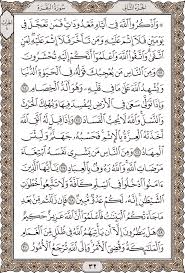 الجزء الثاني سورة البقرة
۞ وَٱذْكُرُوا۟ ٱللَّهَ فِىٓ أَيَّامٍ مَّعْدُودَٰتٍ فَمَن تَعَجَّلَ فِى
يَوْمَيْنِ فَلَآ إِثْمَ عَلَيْهِ وَمَن تَأَخَّرَ فَلَآ إِثْمَ عَلَيْهِ لِمَنِ
ٱتَّقَىٰ وَٱتَّقُوا۟ ٱللَّهَ وَٱعْلَمُوٓا۟ أَنَّكُمْ إِلَيْهِ تُحْشَرُونَ ٢٠٣
وَمِنَ ٱلنَّاسِ مَن يُعْجِبُكَ قَوْلُهُۥ فِى ٱلْحَيَوٰةِ ٱلدُّنْيَا
وَيُشْهِدُ ٱللَّهَ عَلَىٰ مَا فِى قَلْبِهِۦ وَهُوَ أَلَدُّ ٱلْخِصَامِ ٢٠٤
وَإِذَا تَوَلَّىٰ سَعَىٰ فِى ٱلْأَرْضِ لِيُفْسِدَ فِيهَا وَيُهْلِكَ
ٱلْحَرْثَ وَٱلنَّسْلَ وَٱللَّهُ لَا يُحِبُّ ٱلْفَسَادَ ٢٠٥ وَإِذَا قِيلَ لَهُ ٱتَّقِ ٱللَّهَ
أَخَذَتْهُ ٱلْعِزَّةُ بِٱلْإِثْمِ فَحَسْبُهُۥ جَهَنَّمُ وَلَبِئْسَ
ٱلْمِهَادُ ٢٠٦ وَمِنَ ٱلنَّاسِ مَن يَشْرِى نَفْسَهُ ٱبْتِغَآءَ
مَرْضَاتِ ٱللَّهِ وَٱللَّهُ رَءُوفٌۢ بِٱلْعِبَادِ ٢٠٧ يَٰٓأَيُّهَا ٱلَّذِينَ
ءَامَنُوا۟ ٱدْخُلُوا۟ فِى ٱلسِّلْمِ كَآفَّةً وَلَا تَتَّبِعُوا۟ خُطُوَٰتِ
ٱلشَّيْطَٰنِ إِنَّهُۥ لَكُمْ عَدُوٌّ مُّبِينٌ ٢٠٨ فَإِن زَلَلْتُم مِّنۢ بَعْدِ
مَا جَآءَتْكُمُ ٱلْبَيِّنَٰتُ فَٱعْلَمُوٓا۟ أَنَّ ٱللَّهَ عَزِيزٌ حَكِيمٌ ٢٠٩
هَلْ يَنظُرُونَ إِلَّآ أَن يَأْتِيَهُمُ ٱللَّهُ فِى ظُلَلٍ مِّنَ ٱلْغَمَامِ
وَٱلْمَلَٰٓئِكَةُ وَقُضِىَ ٱلْأَمْرُ وَإِلَى ٱللَّهِ تُرْجَعُ ٱلْأُمُورُ ٢١٠
٣٢